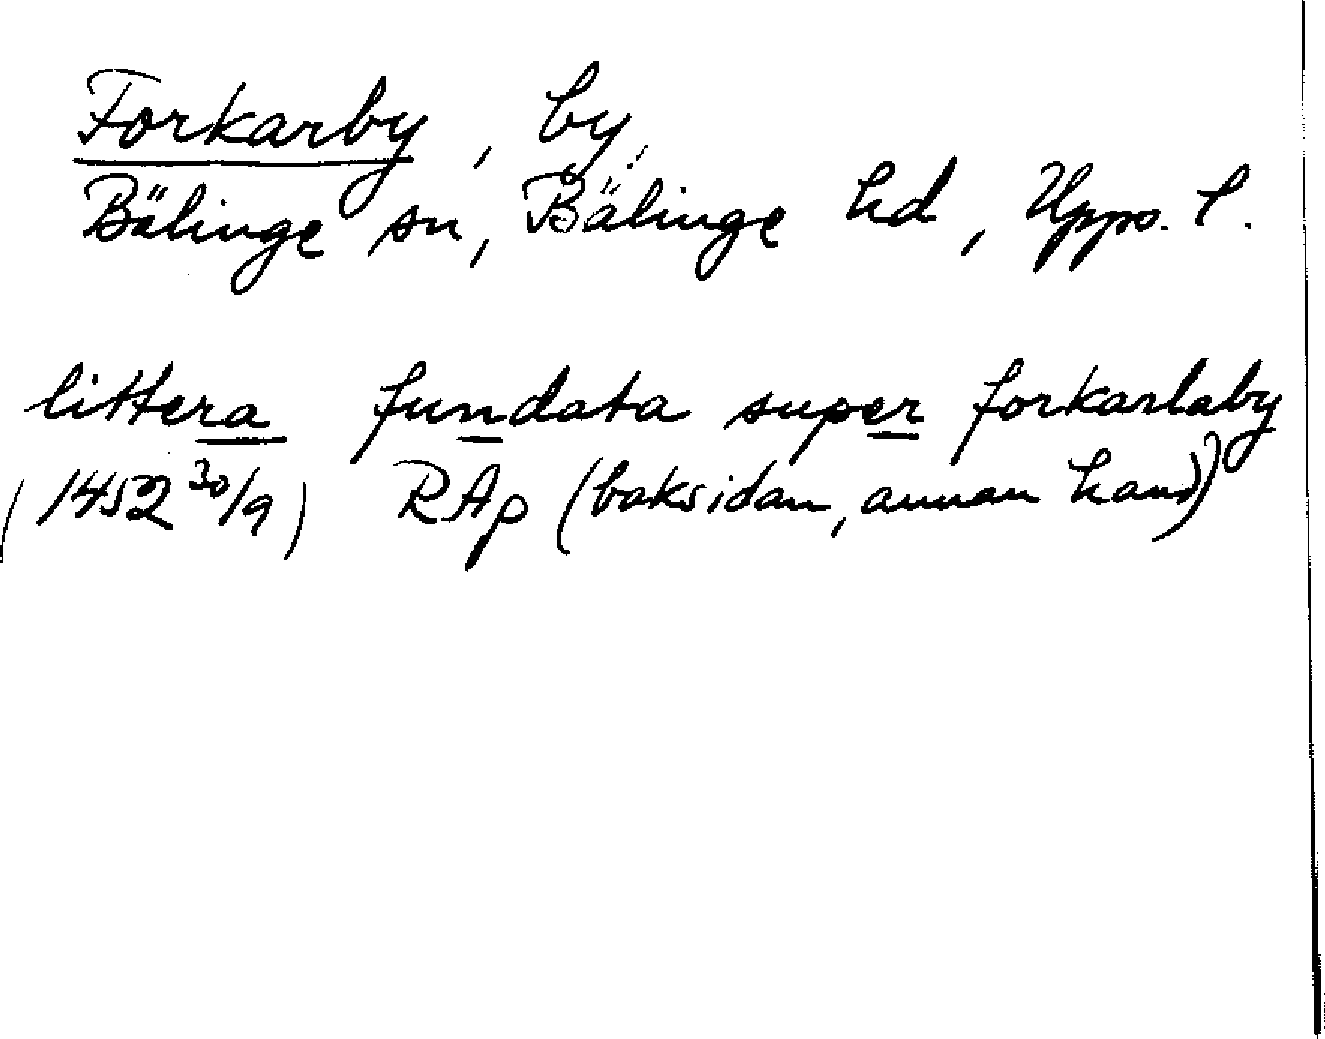 Forkarby, by,
Bälinge sn, Bälinge hd, Upps. l.
littera fundata super forkarlaby
(1452 30/9) RAp (baksidan, annan hand)